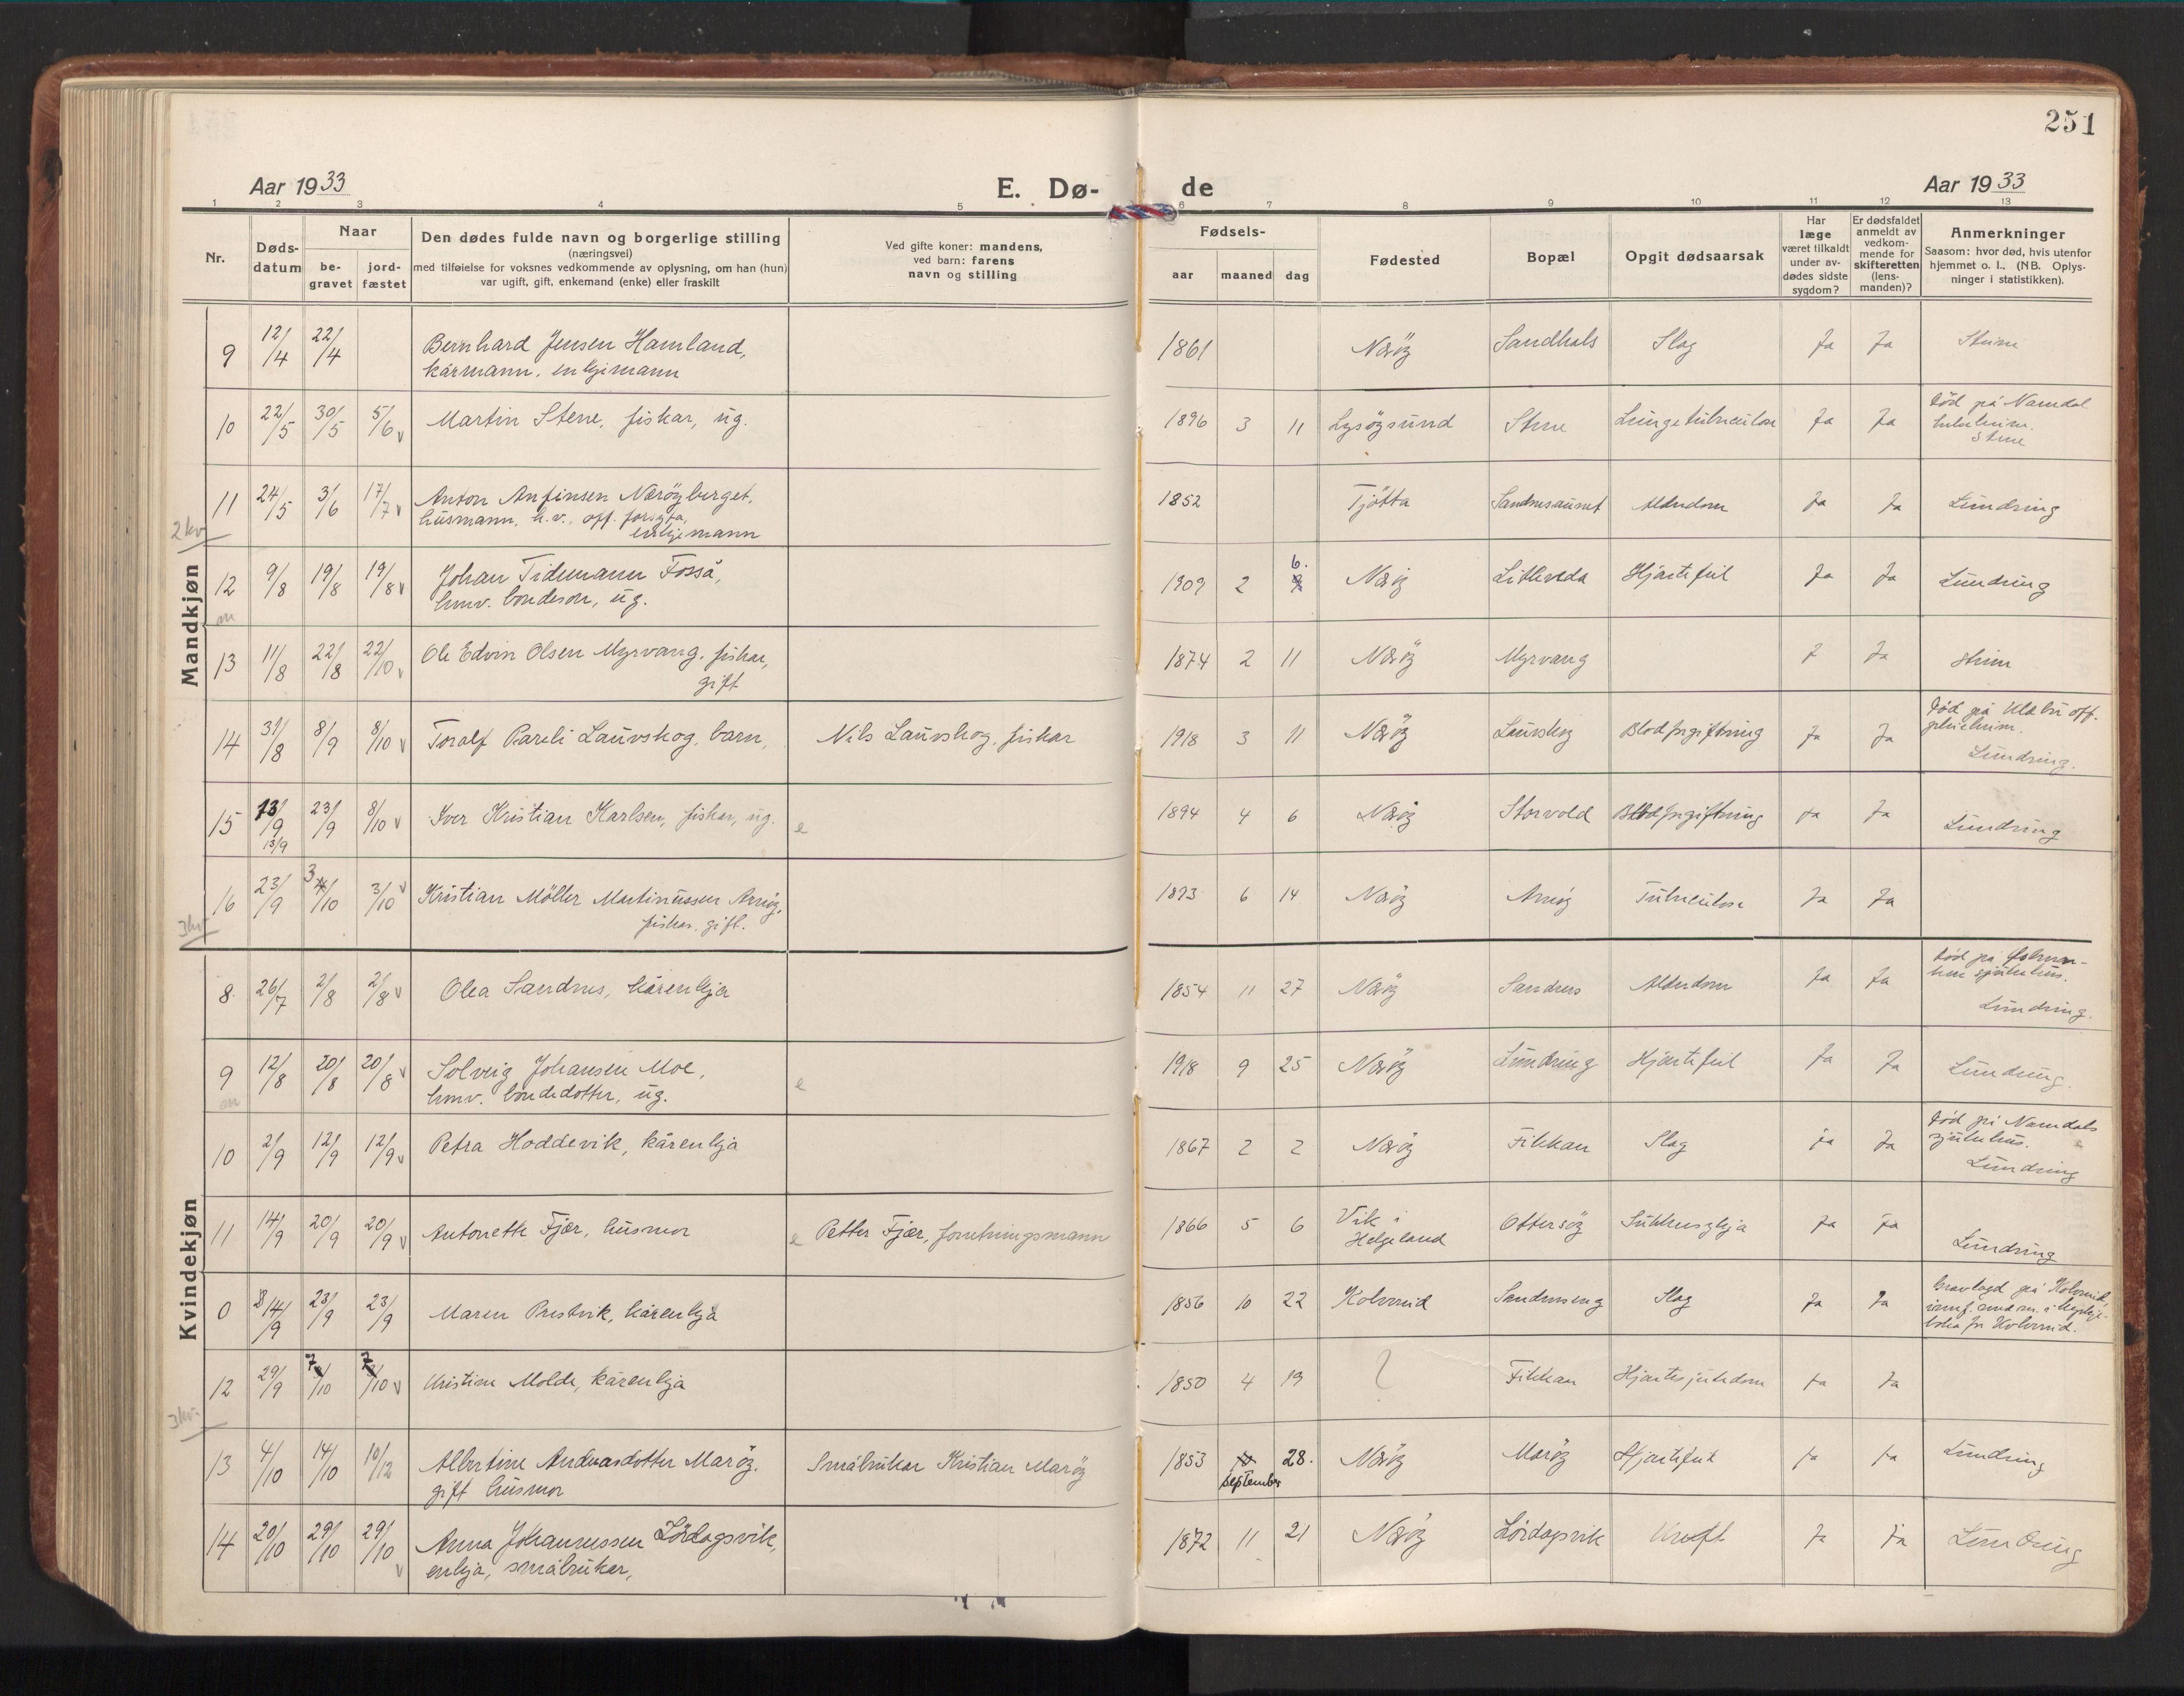 251
Aar 1933
E. Dø-
de
Aar 1933
1 2 3 4 5 6 7 8 9 10 11 12 13
Nr.
Døds-
datum
Naar
be-
gravet
jord-
fæstet
Den dødes fulde navn og borgerlige stilling
(næringsvei)
med tilføielse for voksnes vedkommende av oplysning, om han (hun)
var ugift, gift, enkemand (enke) eller fraskilt
Ved gifte koner: mandens,
ved barn: farens
navn og stilling
Fødsels-
aar maaned dag
Fødested
Bopæl
Opgit dødsaarsak
Har
læge
været tilkaldt
under av-
dødes sidste
sygdom?
Er dødsfaldet
anmeldt av
vedkom-
mende for
skifteretten
(lens-
manden)?
Anmerkninger
Saasom: hvor død, hvis utenfor
hjemmet o. l., (NB. Oplys-
ninger i statistikken).
Mandkjøn
9 12/4 22/4 Bernhard Jensen Hamland, 1861 Nærøy Sandhals Slag Ja Ja Steine
kårmann, enkjemann
10 22/5 30/5 5/6 v Martin Stene, fiskar, ug. 1896 3 11 Lysøysund Stene Lungetuberkulose Ja Ja Død på Namdal
Stene
11 24/5 3/6 17/7 v Anton Anfinsen Nærøyberget, 1852 Tjötta Sandnesaunet Alderdom Ja Ja Lundring
husmann, h.v., off. forsytja,
enkjemann
2 kv
12 9/8 19/8 19/8 v Johan Tidemann Fosså, 1909 2 6. Nærøy Hjartefeil Ja Ja Lundring
hmv. bondeson, ug.
13 11/8 22/8 22/10 v Ole Edvin Olsen Myrvang, fiskar, 1874 2 11 Nærøy Myrvang ? Ja Steine
gift
14 31/8 8/9 8/10 v Toralf Pareli Lauvskog, barn, Nils Lauvskog, fiskar 1918 3 11 Nærøy Lauvskog Blodforgiftning Ja Ja Død på Klæbu off.
pleieheim.
Lundring.
15 13/9 23/9 8/10 v Iver Kristian Karlsen, fiskar, ug. e 1894 4 6 Nærøy Storvold Blodforgiftning Ja Ja Lundring
13/9
16 23/9 3/10 3/10 v Kristian Möller Martinussen Arnøy, 1893 6 14 Nærøy Arnøy Tuberkulose Ja Ja
fiskar, gift.
3 kv
Kvindekjøn
8 26/7 2/8 2/8 v Olea Sandnes, kårenkja 1854 11 27 Nærøy Sandnes Alderdom Ja Ja Død på
sjukehus.
Lundring.
9 12/8 20/8 20/8 v Solveig Johansen Moe, e 1918 9 25 Nærøy Lundring Hjartefeil Ja Ja Lundring.
hmv. bondedotter, ug.
10 2/9 12/9 12/9 v Petra Hoddevik, kårenkja 1867 2 2 Nærøy Fikkan Slag ja Ja Død på Namdals
sjukehus.
Lundring
11 14/9 20/9 20/9 v Antonette Fjær, husmor e Petter Fjær, forretningsmann 1866 5 6 Vik i Ottersöy Sukkersykja Ja ja Lundring
Helgeland
0 14/9 23/9 23/9 Maren Prestvik, kårenkja 1856 10 22 Kolvereid Sandnseng Slag Ja Ja Gravlagd på Kolvereid,
innf. som nr. i kyrkje-
boka for Kolvereid.
12 29/9 7/10 7/10 v Kristine Molde, kårenkja 1850 4 19 ? Fikkan Hjartesjukdom Ja Ja
3 kv.
13 4/10 14/10 10/12 Albertine Andreasdotter Marøy. Småbrukar Kristian Marøy 1853 28. Nærøy Marøy Hjartefeil Ja Ja Lundring
gift husmor September
14 20/10 29/10 29/10 v Anna Johannessen Lördagsvik, 1872 11 21 Nærøy Lördagsvik Kreft Ja ja Lundring
enkja, småbrukar,